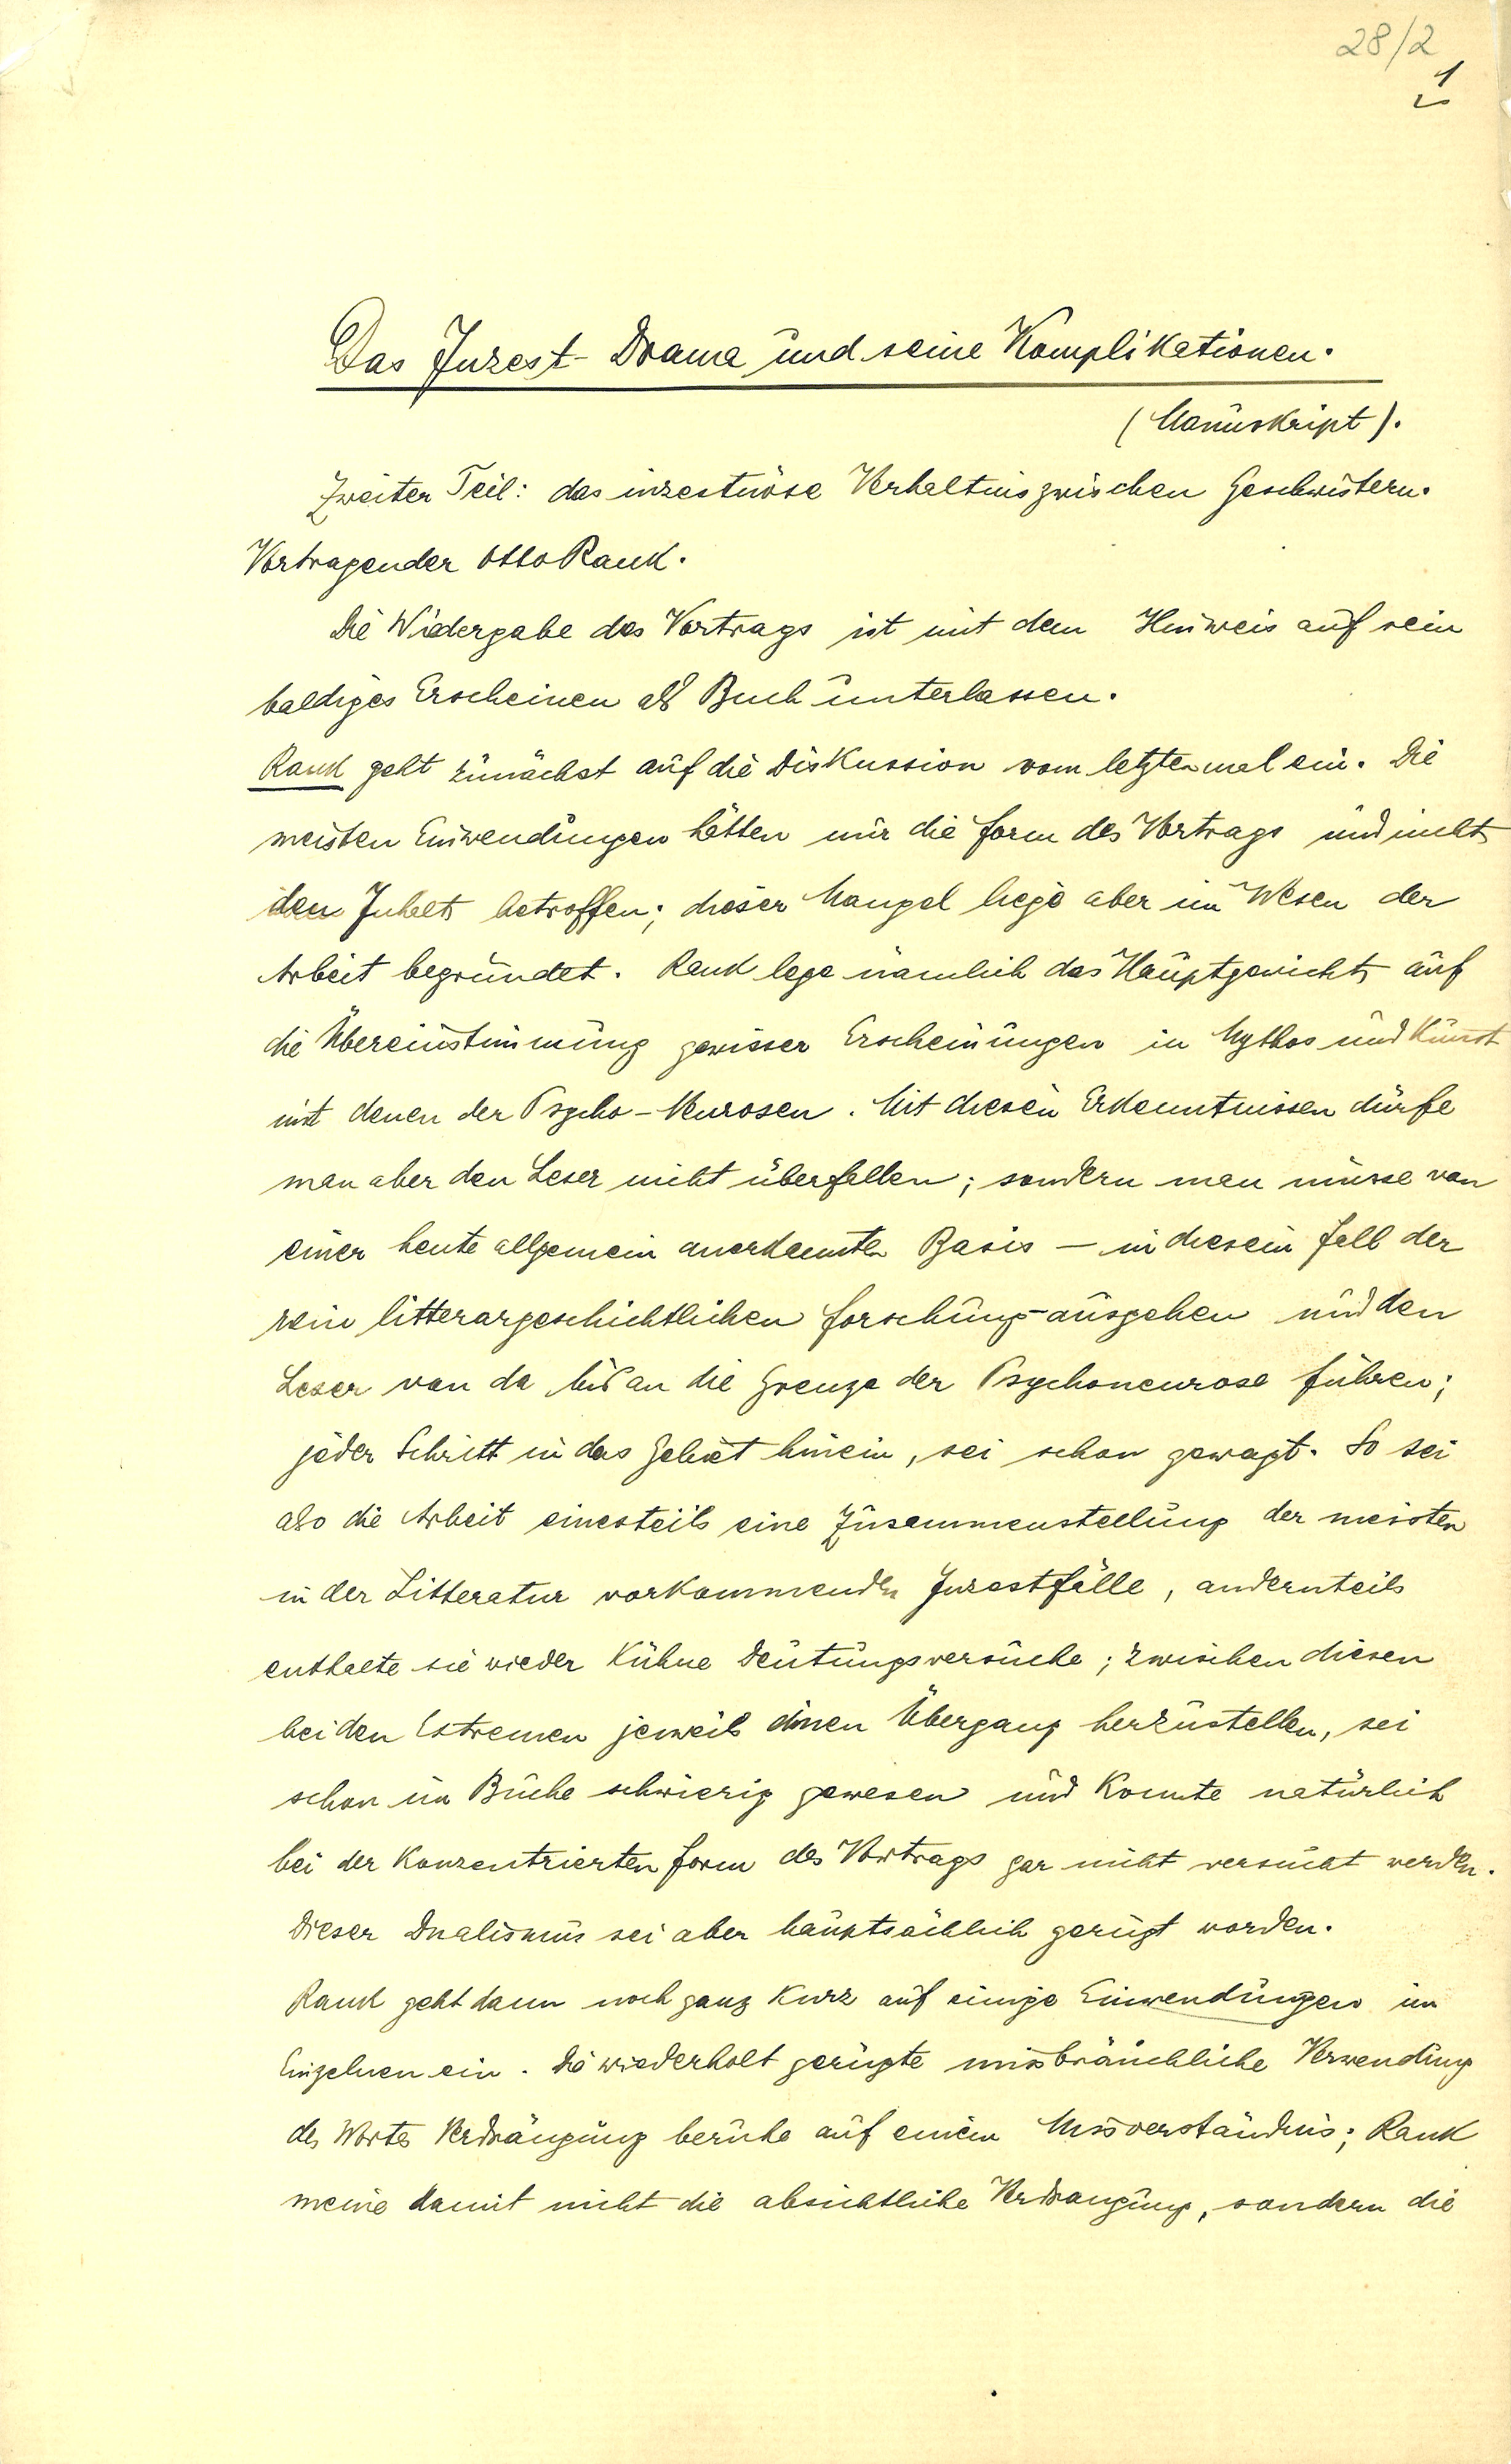 28/2
1
Das Inzest-Drama und seine Komplikationen.
(Manuskript).
Zweiter Teil: das inzestuöse Verhältnis zwischen Geschwistern.
Vortragender Otto Rank.
Die Widergabe des Vortrags ist mit dem Hinweis auf sein
baldiges Erscheinen als Buch unterlassen.
Rank geht zunächst auf die Diskussion vom letztenmal ein. Die
meisten Einwendungen hätten nur die Form des Vortrags und nicht
den Inhalt betroffen; dieser Mangel liege aber im Wesen der
Arbeit begründet. Rank lege nämlich das Hauptgewicht auf
die Übereinstimmung gewisser Erscheinungen in Mythos und Kunst
mit denen der Psycho-Neurosen. Mit diesen Erkenntnissen dürfe
man aber den Leser nicht überfallen; sondern man müsse von
einer heute allgemein anerkannten Basis — in diesem Fall der
rein litterargeschichtlichen Forschung – ausgehen und den
Leser von da bis an die Grenze der Psychoneurose führen;
jeder Schritt in das Gebiet hinein, sei schon gewagt. So sei
also die Arbeit einesteils eine Zusammenstellung der meisten
in der Litteratur vorkommenden Inzestfälle, andernteils
enthalte sie wieder kühne Deutungsversuche; zwischen diesen
beiden Extremen jeweils einen Übergang herzustellen, sei
schon im Buche schwierig gewesen und konnte natürlich
bei der konzentrierten Form des Vortrags gar nicht versucht werden.
Dieser Dualismus sei aber hauptsächlich gerügt worden.
Rank geht dann noch ganz kurz auf einige Einwendungen im
Einzelnen ein. Die wiederholt gerügte missbräuchliche Verwendung
des Wortes Verdrängung beruhe auf einem Missverständnis; Rank
meine damit nicht die absichtliche Verdrängung, sondern die